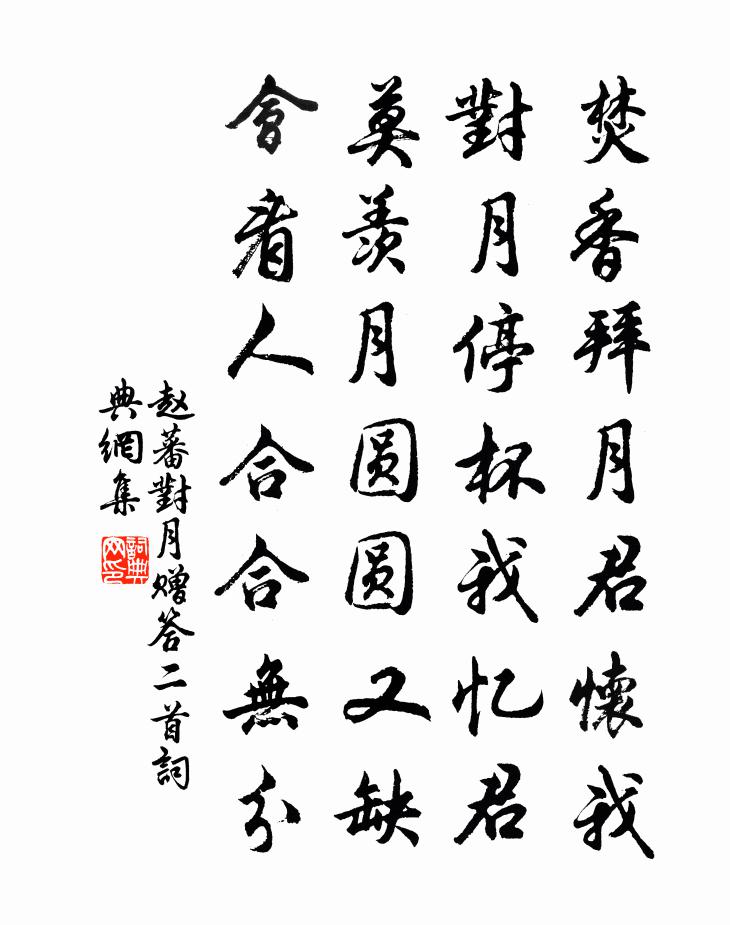 焚香拜月君懷我
對月停杯我忆君
莫羨月圆圆又缺
會看人合合無分
赵蕃對月赠答二首詞
典網集
詞典
网印